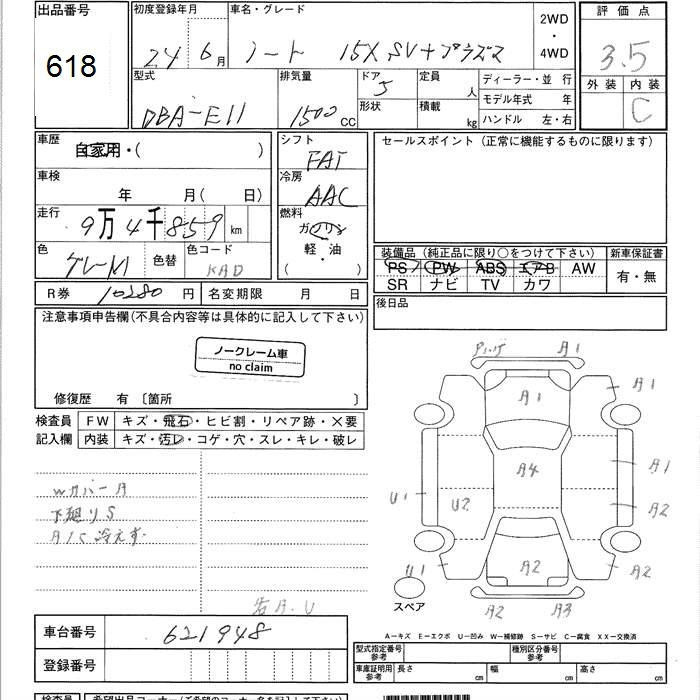 出品番号 初度登録年月 車名・グレード 2WD・4WD 評価点
618 24年 6月 ノート 15X SV+プラズマ 3.5
外装 内装
C
型式 排気量 ドア 5 定員 人 ディーラー・並行
DBA-E11 1500CC 形状 積載 kg モデル年式 年
ハンドル 左・右
車歴 自家用・( ) シフト FAT セールスポイント(正常に機能するものに限ります)
車検 年 月( 日) 冷房 AAC
走行 9万4千859km 燃料 ガソリン
軽・油
( )
色 グレーM 色替 色コード KAD
装備品(純正品に限り○をつけて下さい) 新車保証書
PS PW ABS エアB AW 有・無
SR ナビ TV カワ
R券 10280円 名変期限 月 日 後日品
注意事項申告欄(不具合内容等は具体的に記入して下さい)
ノークレーム車
no claim
修復歴 有〔箇所 〕
検査員 FW キズ・飛石・ヒビ割・リペア跡・×要
記入欄 内装 キズ・汚レ・コゲ・穴・スレ・キレ・破レ
WカバーA
下廻りS
A/C冷えず
A1
A1 A1
A4 A1
U1 U2 A2
U1 A2 A2
A2 A3
スペア
A-キズ E-エクボ U-凹み W-補修跡 S-サビ C-腐食 XX-交換済
車台番号 621948
登録番号
型式指定番号 参考 種別区分番号 参考
車庫証明用 参考 長さ cm 幅 cm 高さ cm